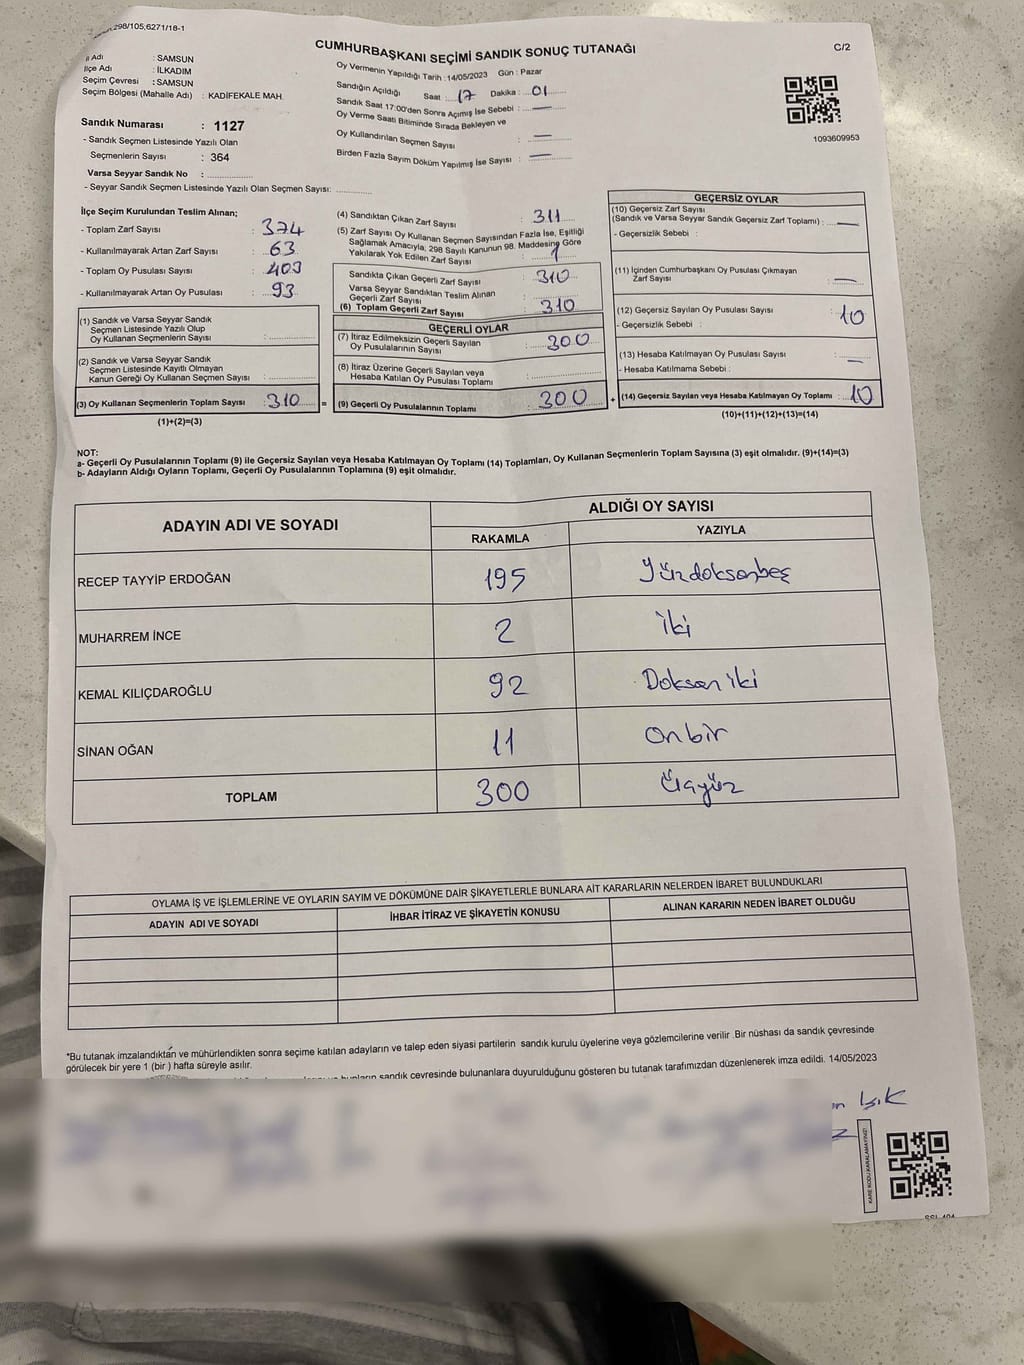 298/105,6271/18-1
CUMHURBAŞKANI SEÇİMİ SANDIK SONUÇ TUTANAĞI
C/2
İl Adı : SAMSUN
İlçe Adı : İLKADIM
Seçim Çevresi : SAMSUN
Seçim Bölgesi (Mahalle Adı) : KADİFEKALE MAH.
Oy Vermenin Yapıldığı Tarih : 14/05/2023 Gün : Pazar
Sandığın Açıldığı Saat : 17 Dakika : 01
Sandık Saat 17:00'den Sonra Açımış İse Sebebi : —
Oy Verme Saati Bitiminde Sırada Bekleyen ve
Oy Kullandırılan Seçmen Sayısı : —
Birden Fazla Sayım Döküm Yapılmış İse Sayısı : —
1093609953
Sandık Numarası : 1127
- Sandık Seçmen Listesinde Yazılı Olan
Seçmenlerin Sayısı : 364
Varsa Seyyar Sandık No :
- Seyyar Sandık Seçmen Listesinde Yazılı Olan Seçmen Sayısı:
İlçe Seçim Kurulundan Teslim Alınan;
- Toplam Zarf Sayısı : 374
- Kullanılmayarak Artan Zarf Sayısı : 63
- Toplam Oy Pusulası Sayısı : 403
- Kullanılmayarak Artan Oy Pusulası : 93
(1) Sandık ve Varsa Seyyar Sandık
Seçmen Listesinde Yazılı Olup
Oy Kullanan Seçmenlerin Sayısı :
(2) Sandık ve Varsa Seyyar Sandık
Seçmen Listesinde Kayıtlı Olmayan
Kanun Gereği Oy Kullanan Seçmen Sayısı :
(3) Oy Kullanan Seçmenlerin Toplam Sayısı : 310 =
(1)+(2)=(3)
(4) Sandıktan Çıkan Zarf Sayısı : 311
(5) Zarf Sayısı Oy Kullanan Seçmen Sayısından Fazla İse, Eşitliği
Sağlamak Amacıyla, 298 Sayılı Kanunun 98. Maddesine Göre
Yakılarak Yok Edilen Zarf Sayısı : 1
Sandıkta Çıkan Geçerli Zarf Sayısı : 310
Varsa Seyyar Sandıktan Teslim Alınan
Geçerli Zarf Sayısı :
(6) Toplam Geçerli Zarf Sayısı : 310
GEÇERLİ OYLAR
(7) İtiraz Edilmeksizin Geçerli Sayılan
Oy Pusulalarının Sayısı : 300
(8) İtiraz Üzerine Geçerli Sayılan veya
Hesaba Katılan Oy Pusulası Toplamı :
(9) Geçerli Oy Pusulalarının Toplamı : 300 +
GEÇERSİZ OYLAR
(10) Geçersiz Zarf Sayısı
(Sandık ve Varsa Seyyar Sandık Geçersiz Zarf Toplamı) : —
- Geçersizlik Sebebi :
(11) İçinden Cumhurbaşkanı Oy Pusulası Çıkmayan
Zarf Sayısı : —
(12) Geçersiz Sayılan Oy Pusulası Sayısı : 10
- Geçersizlik Sebebi :
(13) Hesaba Katılmayan Oy Pusulası Sayısı : —
- Hesaba Katılmama Sebebi :
(14) Geçersiz Sayılan veya Hesaba Katılmayan Oy Toplamı : 10
(10)+(11)+(12)+(13)=(14)
NOT:
a- Geçerli Oy Pusulalarının Toplamı (9) ile Geçersiz Sayılan veya Hesaba Katılmayan Oy Toplamı (14) Toplamları, Oy Kullanan Seçmenlerin Toplam Sayısına (3) eşit olmalıdır. (9)+(14)=(3)
b- Adayların Aldığı Oyların Toplamı, Geçerli Oy Pusulalarının Toplamına (9) eşit olmalıdır.
ADAYIN ADI VE SOYADI
ALDIĞI OY SAYISI
RAKAMLA YAZIYLA
RECEP TAYYİP ERDOĞAN 195 Yüzdoksanbeş
MUHARREM İNCE 2 iki
KEMAL KILIÇDAROĞLU 92 Doksan iki
SİNAN OĞAN 11 onbir
TOPLAM 300 Üçyüz
OYLAMA İŞ VE İŞLEMLERİNE VE OYLARIN SAYIM VE DÖKÜMÜNE DAİR ŞİKAYETLERLE BUNLARA AİT KARARLARIN NELERDEN İBARET BULUNDUKLARI
ADAYIN ADI VE SOYADI İHBAR İTİRAZ VE ŞİKAYETİN KONUSU ALINAN KARARIN NEDEN İBARET OLDUĞU
*Bu tutanak imzalandıktan ve mühürlendikten sonra seçime katılan adayların ve talep eden siyasi partilerin sandık kurulu üyelerine veya gözlemcilerine verilir. Bir nüshası da sandık çevresinde
görülecek bir yere 1 (bir ) hafta süreyle asılır.
sandık çevresinde bulunanlara duyurulduğunu gösteren bu tutanak tarafımızdan düzenlenerek imza edildi. 14/05/2023
Işık
KARE KODU KARALAMAYINIZ!